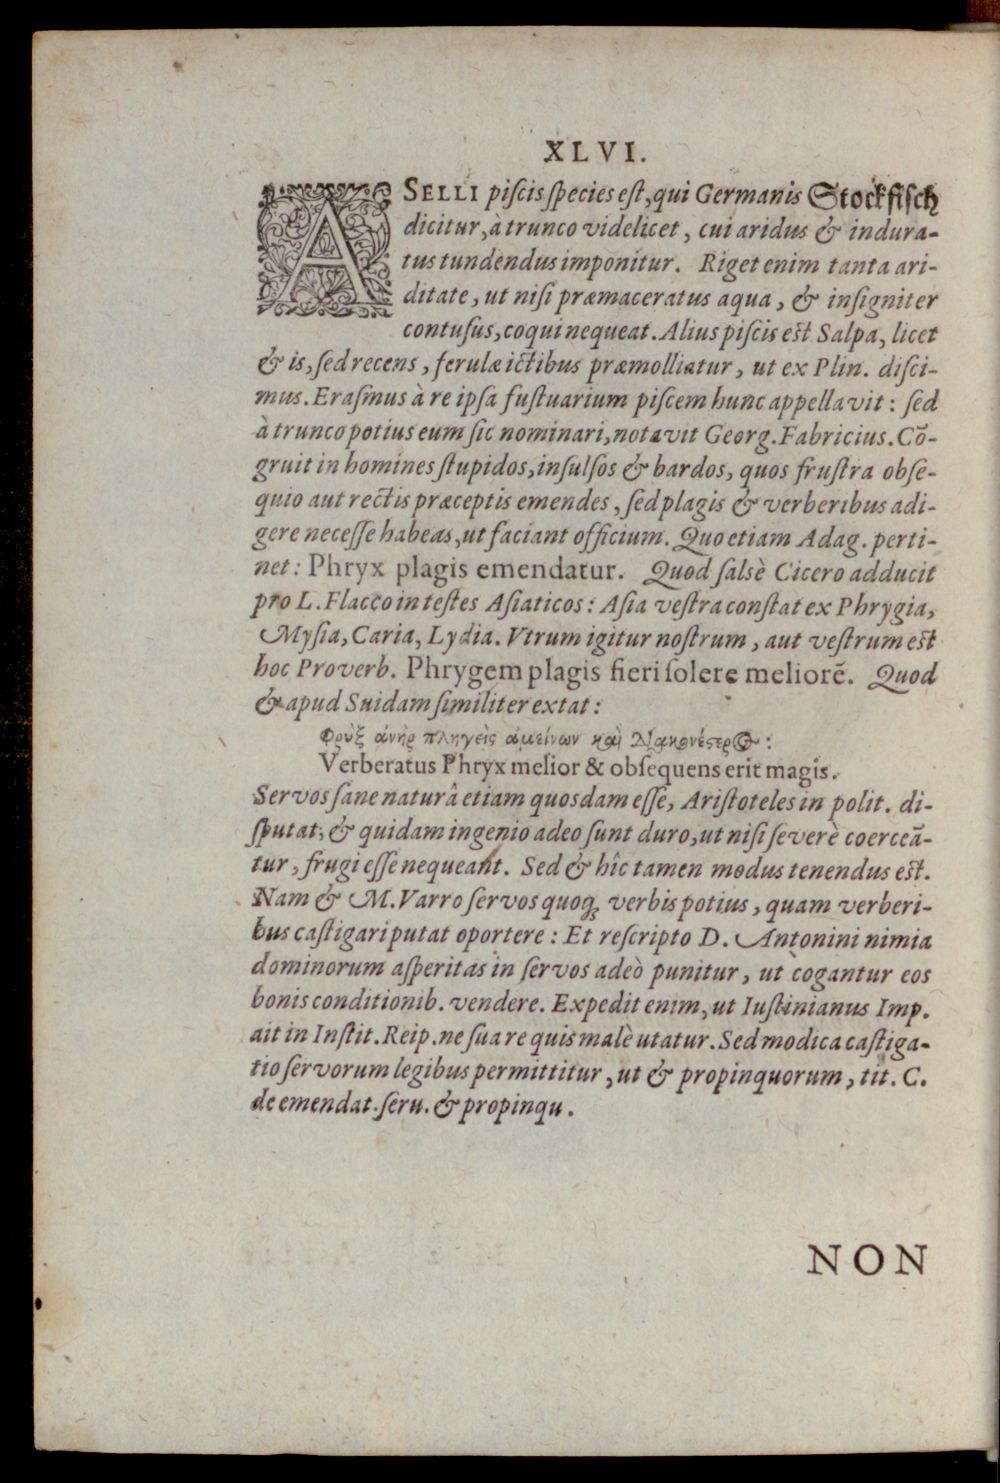 XLVI.
ASELLI piſcis ſpecies eſt, qui Germanis Stockfiſch
dicitur, à trunco videlicet, cui aridus & indura-
tus tundendus imponitur. Riget enim tanta ari-
ditate, ut niſi præmaceratus aqua, & inſigniter
contuſus, coqui nequeat. Alius piſcis eſt Salpa, licet
& is, ſed recens, ferulæ ictibus præmolliatur, ut ex Plin. diſci-
mus. Eraſmus à re ipſa fuſtuarium piſcem hunc appellavit: ſed
à trunco potius eum ſic nominari, notavit Georg. Fabricius. Cō-
gruit in homines ſtupidos, inſulſos & bardos, quos fruſtra obſe-
quio aut rectis præceptis emendes, ſed plagis & verberibus adi-
gere neceſſe habeas, ut faciant officium. Quo etiam Adag. perti-
net: Phryx plagis emendatur. Quod ſalsè Cicero adducit
pro L. Flacco in teſtes Aſiaticos: Aſia veſtra conſtat ex Phrygia,
Myſia, Caria, Lydia. Vtrum igitur noſtrum, aut veſtrum eſt
hoc Proverb. Phrygem plagis fieri ſolere meliorē. Quod
& apud Suidam ſimiliter extat:
Φρὺξ ἀνὴρ πληγεὶς ἀμείνων καὶ
Verberatus Phryx melior & obſequens erit magis.
Servos ſane naturâ etiam quosdam eſſe, Ariſtoteles in polit. di-
ſputat; & quidam ingenio adeo ſunt duro, ut niſi ſeverè coerceā-
tur, frugi eſſe nequeant. Sed & hîc tamen modus tenendus eſt.
Nam & M. Varro ſervos quoq; verbis potius, quam verberi-
bus caſtigari putat oportere: Et reſcripto D. Antonini nimia
dominorum aſperitas in ſervos adeò punitur, ut cogantur eos
bonis conditionib. vendere. Expedit enim, ut Iuſtinianus Imp.
ait in Inſtit. Reip. ne ſua re quis malè utatur. Sed modica caſtiga-
tio ſervorum legibus permittitur, ut & propinquorum, tit. C.
de emendat. ſeru. & propinqu.
NON